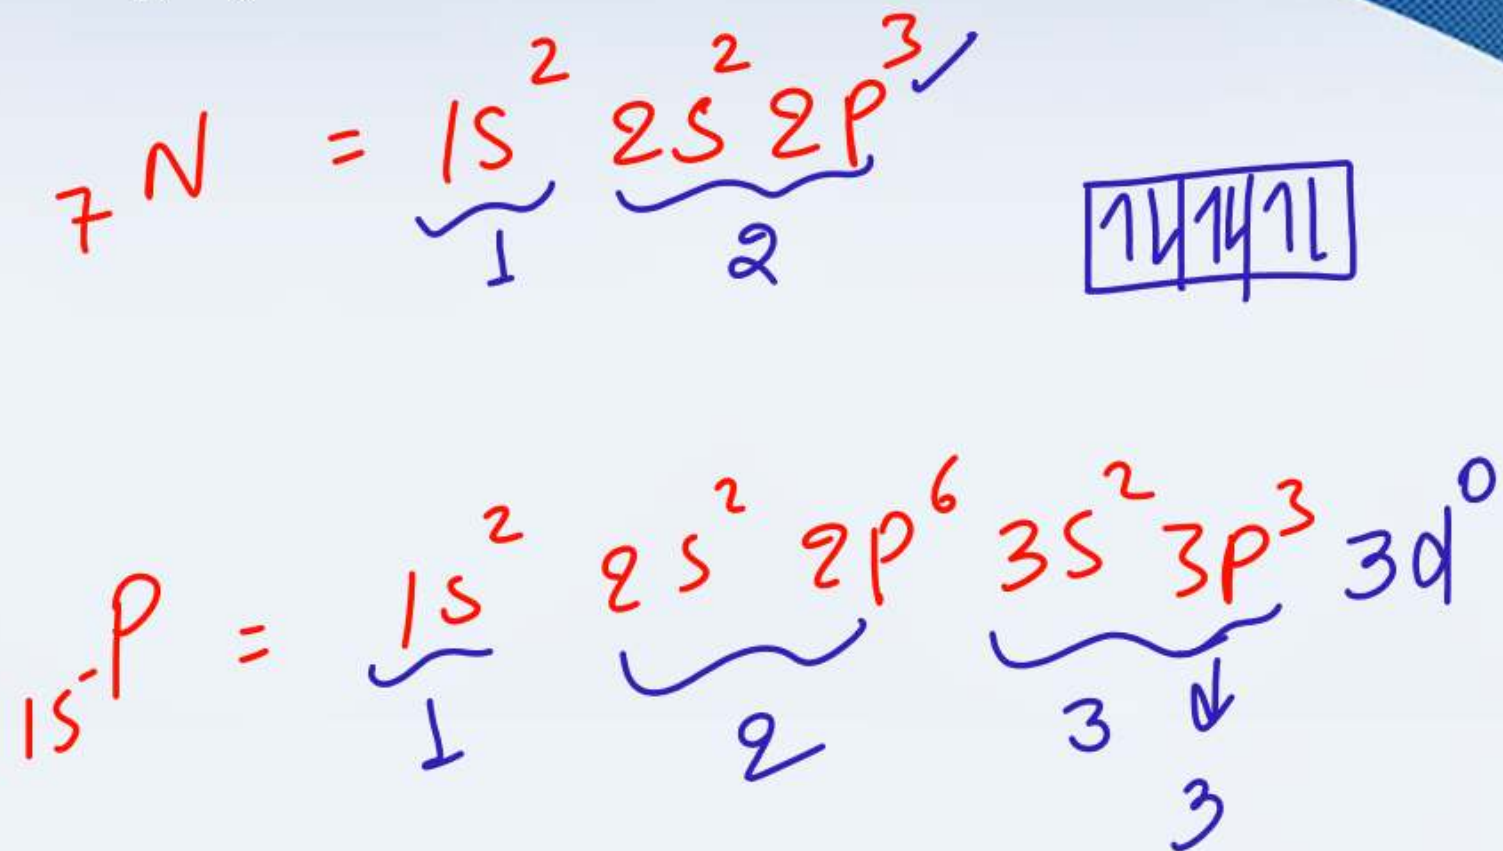 ₇N = 1s² 2s² 2p³ ✓
1 2
1L 1L 1L
₁₅P = 1s² 2s² 2p⁶ 3s² 3p³ 3d⁰
1 2 3 ↓
3